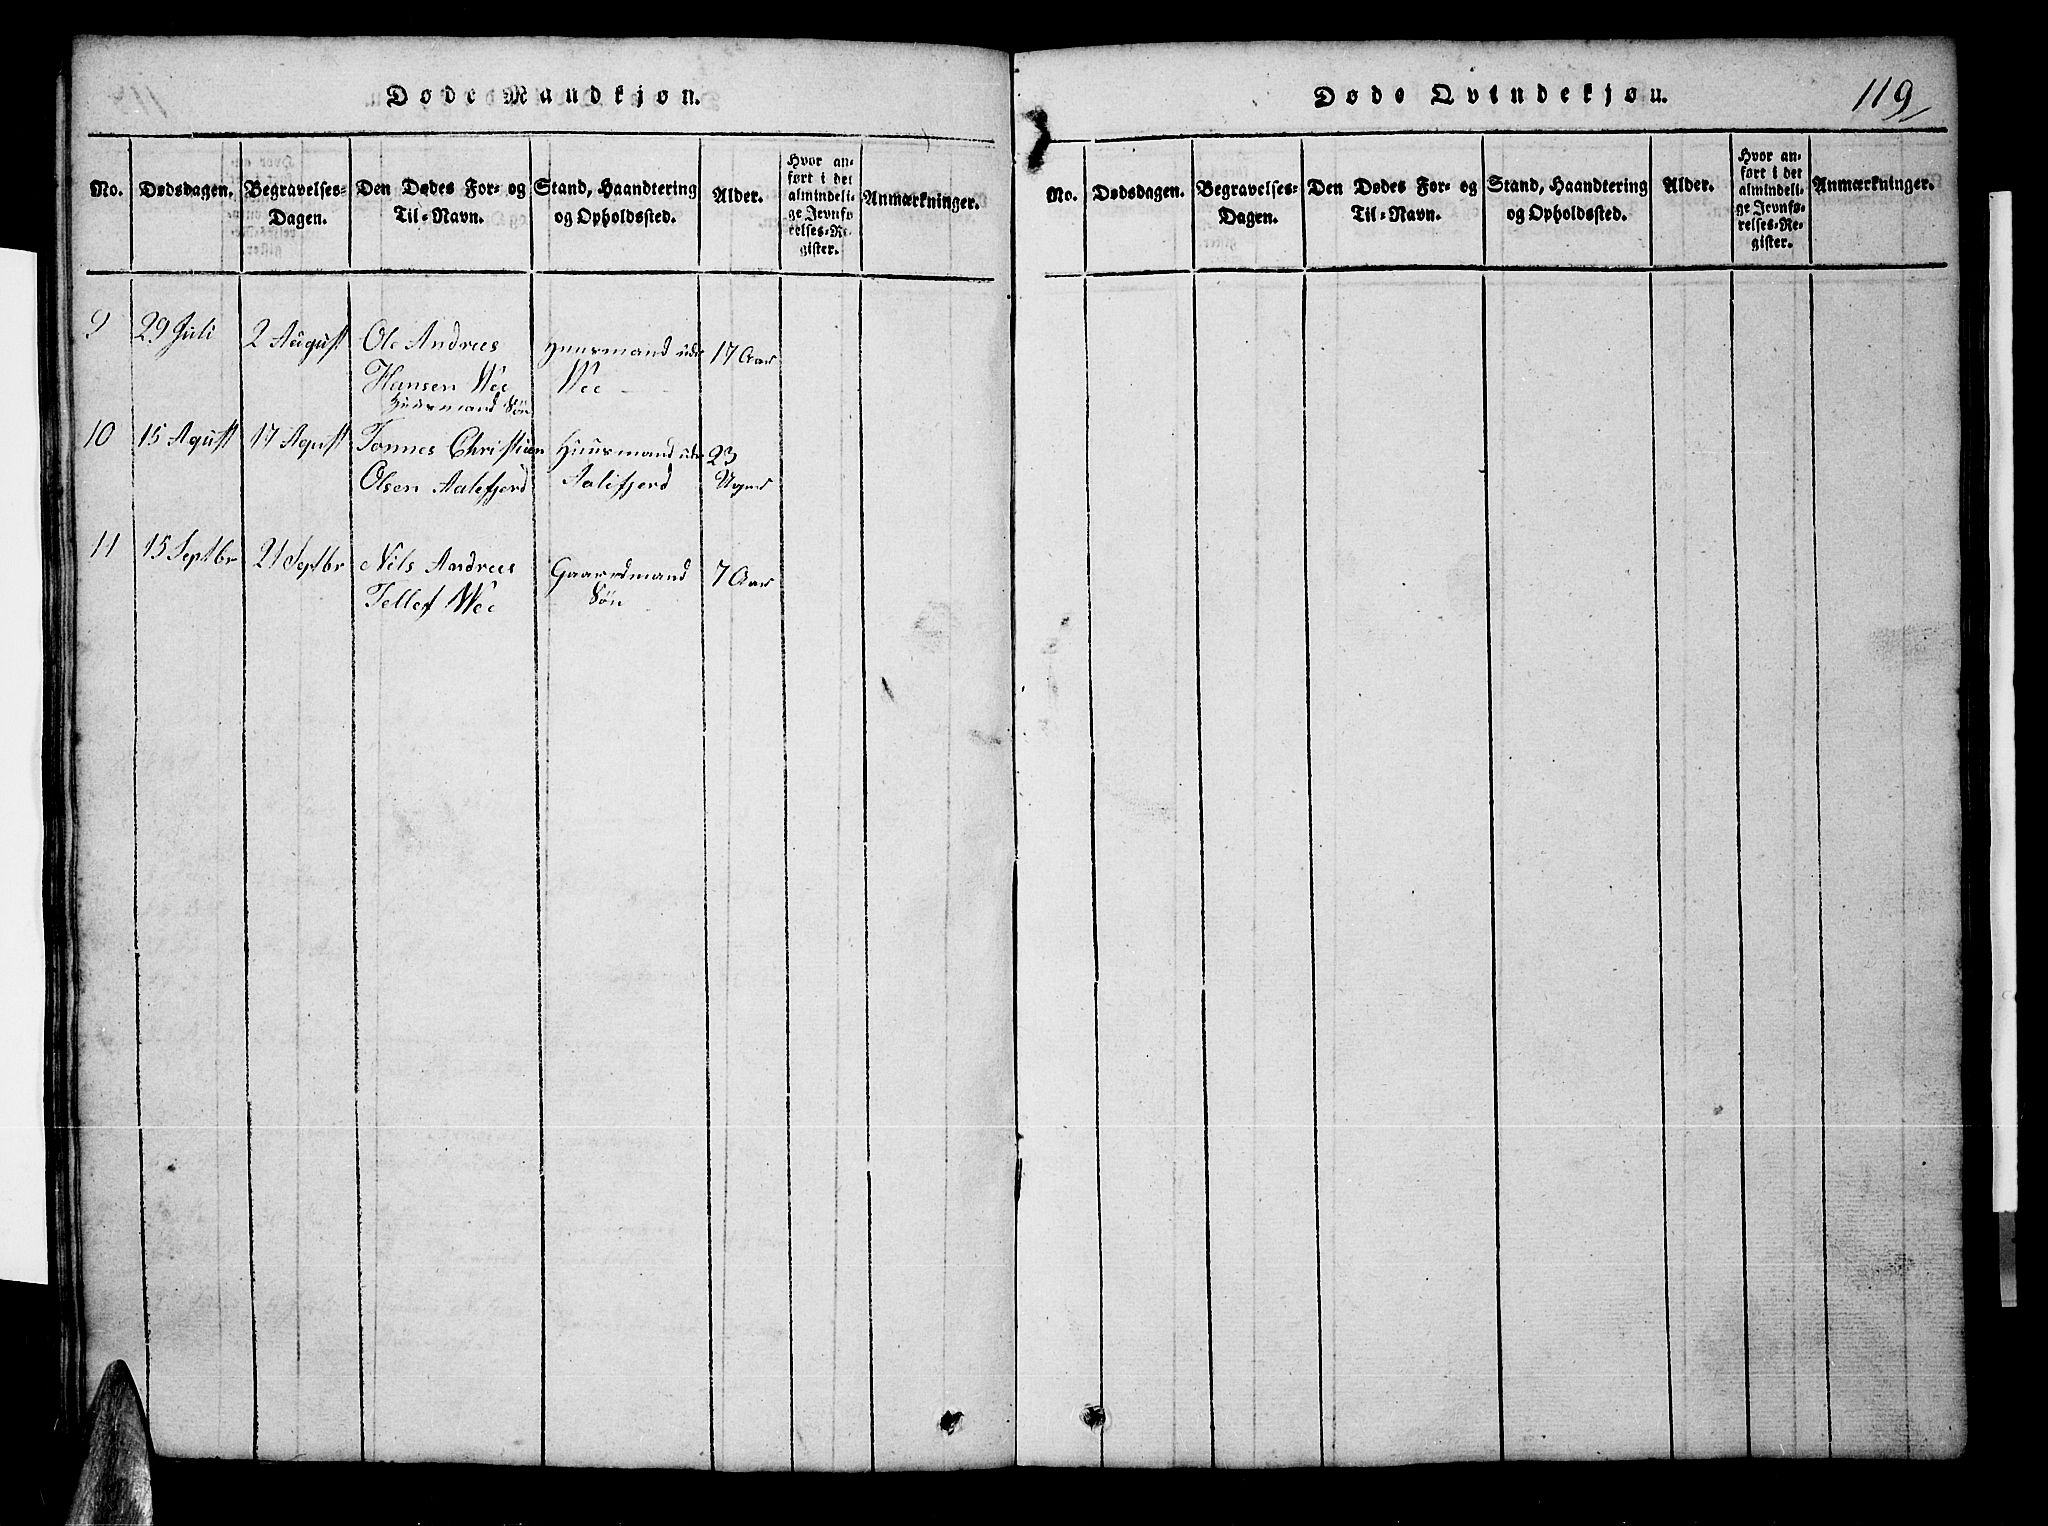 Døde Mandkjøn.
No. Dødsdagen. Begravelses-Dagen. Den Dødes For- og Til-Navn. Stand, Haandtering og Opholdssted. Alder. Hvor anført i det almindelige Jevnførelses-Register. Anmærkninger.
9 29 Juli 2 August Ole Andrees Huusmand 17 Aar
Hansen Wee Wee
Huusmand Søn
10 15 Agust 17 Agust Tønnes Christian Huusmand 23
Olsen Aalefjerd Aalefjerd
11 15 Septbr 21 Septbr Nils Andrees Gaardmand 7 Aar
Tellef Wee Søn
Døde Qvindekjøn.
119
No. Dødsdagen. Begravelses-Dagen. Den Dødes For- og Til-Navn. Stand, Haandtering og Opholdssted. Alder. Hvor anført i det almindelige Jevnførelses-Register. Anmærkninger.